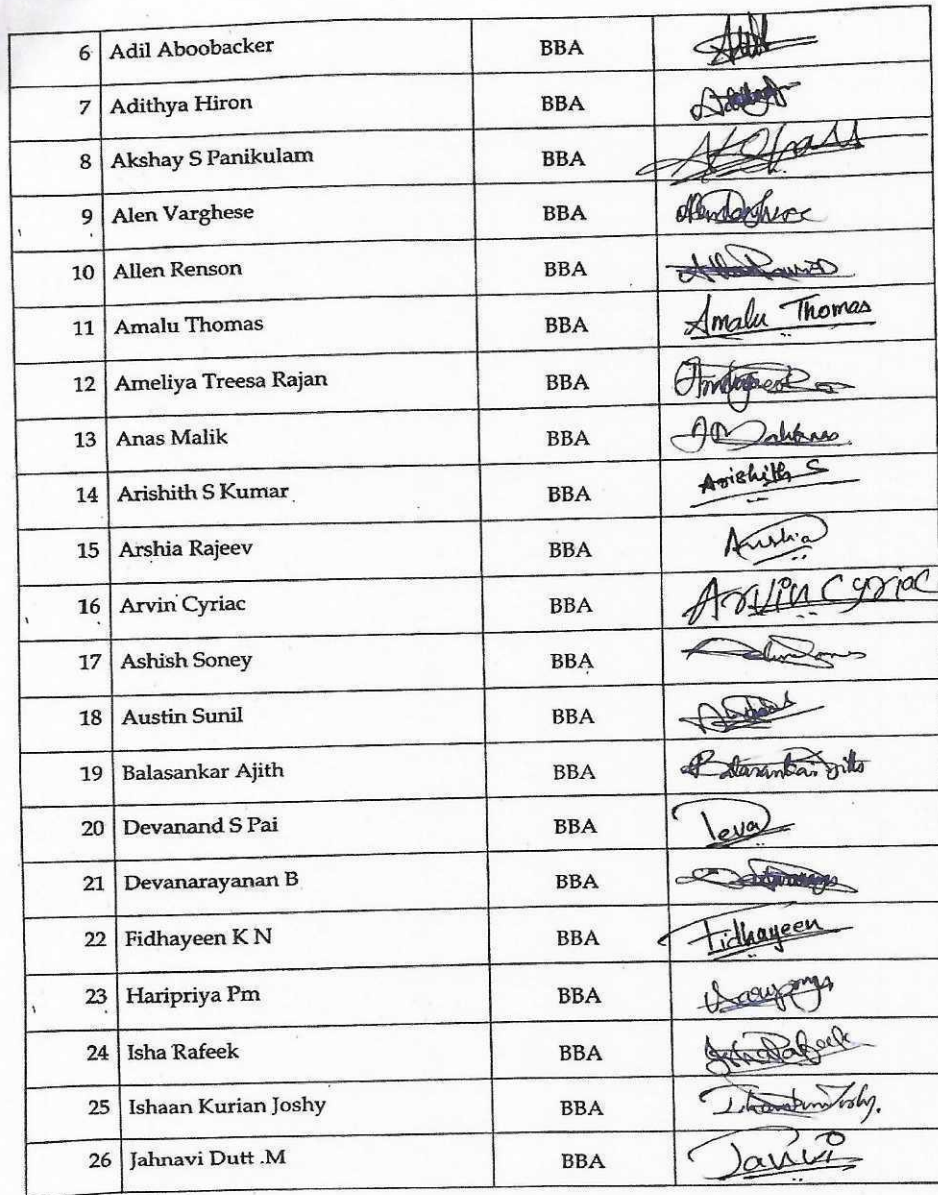 6 Adil Aboobacker BBA
7 Adithya Hiron BBA
8 Akshay S Panikulam BBA
9 Alen Varghese BBA
10 Allen Renson BBA
11 Amalu Thomas BBA Amalu Thomas
12 Ameliya Treesa Rajan BBA
13 Anas Malik BBA
14 Arishith S Kumar BBA Arishith S
15 Arshia Rajeev BBA Arshia
16 Arvin Cyriac BBA Arvin Cyriac
17 Ashish Soney BBA
18 Austin Sunil BBA
19 Balasankar Ajith BBA
20 Devanand S Pai BBA Deva
21 Devanarayanan B BBA
22 Fidhayeen K N BBA Fidhayeen
23 Haripriya Pm BBA
24 Isha Rafeek BBA Isha Rafeek
25 Ishaan Kurian Joshy BBA
26 Jahnavi Dutt .M BBA